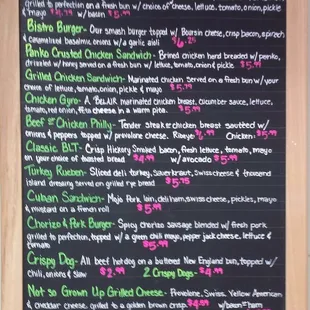 grilled to perfection on a fresh bun w/ choice of cheese, lettuce, tomato, onion, pickle
& mayo $4.75 w/bacon $5.99
Bistro Burger- Our smash burger topped w/ Boursin cheese, crisp bacon, spinach
& caramelized balsamic onions w/ a garlic aioli $6.25
Panko Crusted Chicken Sandwich- Brined chicken hand breaded w/ panko,
drizzled w/ honey served on a fresh bun w/ lettuce, tomato, onion & pickle $5.99
Grilled Chicken Sandwich- Marinated chicken served on a fresh bun w/ your
choice of lettuce, tomato, onion, pickle & mayo $5.75
Chicken Gyro- A marinated chicken breast, cucumber sauce, lettuce,
tomato, red onion, feta cheese in a warm pita $5.99
Beef or Chicken Philly- Tender steak or chicken breast sautéed w/
onions & peppers topped w/ provolone cheese. Ribeye $6.99 Chicken $5.99
Classic BLT- Crisp Hickory Smoked bacon, fresh lettuce, tomato, mayo
on your choice of toasted bread $4.99 w/ avocado $5.99
Turkey Rueben- Sliced deli turkey, Sauerkraut, Swiss cheese & thousand
island dressing served on grilled rye bread $5.75
Cuban Sandwich- Mojo Pork loin, deli ham, swiss cheese, pickles, mayo
& mustard on a french roll $5.99
Chorizo & Pork Burger- Spicy chorizo sausage blended w/ fresh pork
grilled to perfection, topped w/ a green chili mayo, pepper jack cheese, lettuce &
tomato $5.99
Crispy Dog- All beef hot dog on a buttered New England bun, topped w/
chili, onions & slaw $2.99 2 Crispy Dogs- $4.99
Not so Grown Up Grilled Cheese- Provolone, Swiss, Yellow American
& cheddar cheese, grilled to a golden brown crisp $4.99 w/ bacon or ham